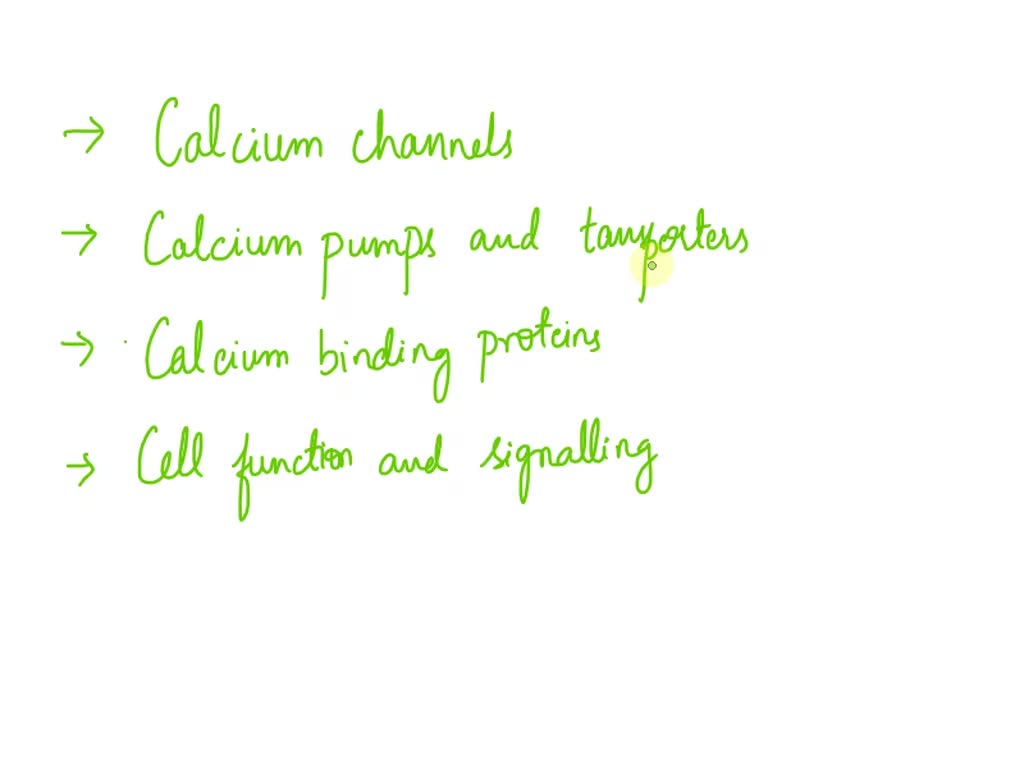 → Calcium channels
→ Calcium pumps and tansporters
→ Calcium binding proteins
→ Cell function and signalling